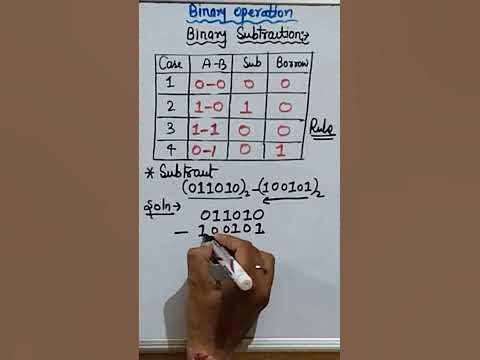 Binary operation
Binary Subtraction:→
Case A-B Sub Borrow
1 0-0 0 0
2 1-0 1 0
3 1-1 0 0
4 0-1 0 1
Rule
* Subtraut
(011010)₂-(100101)₂
Soln→
011010
- 100101